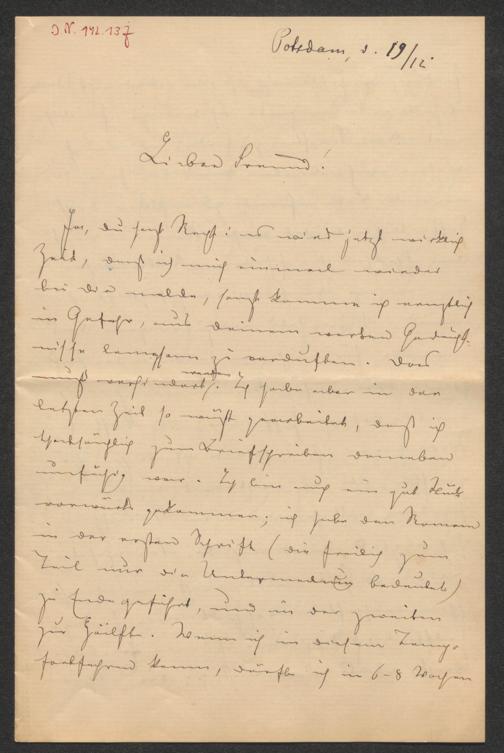 I.N. 142.137
Potsdam, d. 19/12.
Lieber Freund!
Ja, du hast Recht: es wird jetzt wirklich
Zeit, daß ich mich einmal wieder
bei dir melde, sonst komme ich ernstlich
in Gefahr, aus deinem werten Gedächt-
nisse langsam zu verduften. Das
muß verhindert werden. Ich habe aber in der
letzten Zeit so wüst gearbeitet, daß ich
thatsächlich zum Briefschreiben daneben
unfähig war. Ich bin auch ein gut Stück
vorwärts gekommen; ich habe den Roman
in der ersten Schrift (die freilich zum
Teil nur die Untermalung bedeutet)
zu Ende geführt, und in der zweiten
zur Hälfte. Wenn ich in diesem Tempo
fortfahren kann, dürfte ich in 6-8 Wochen